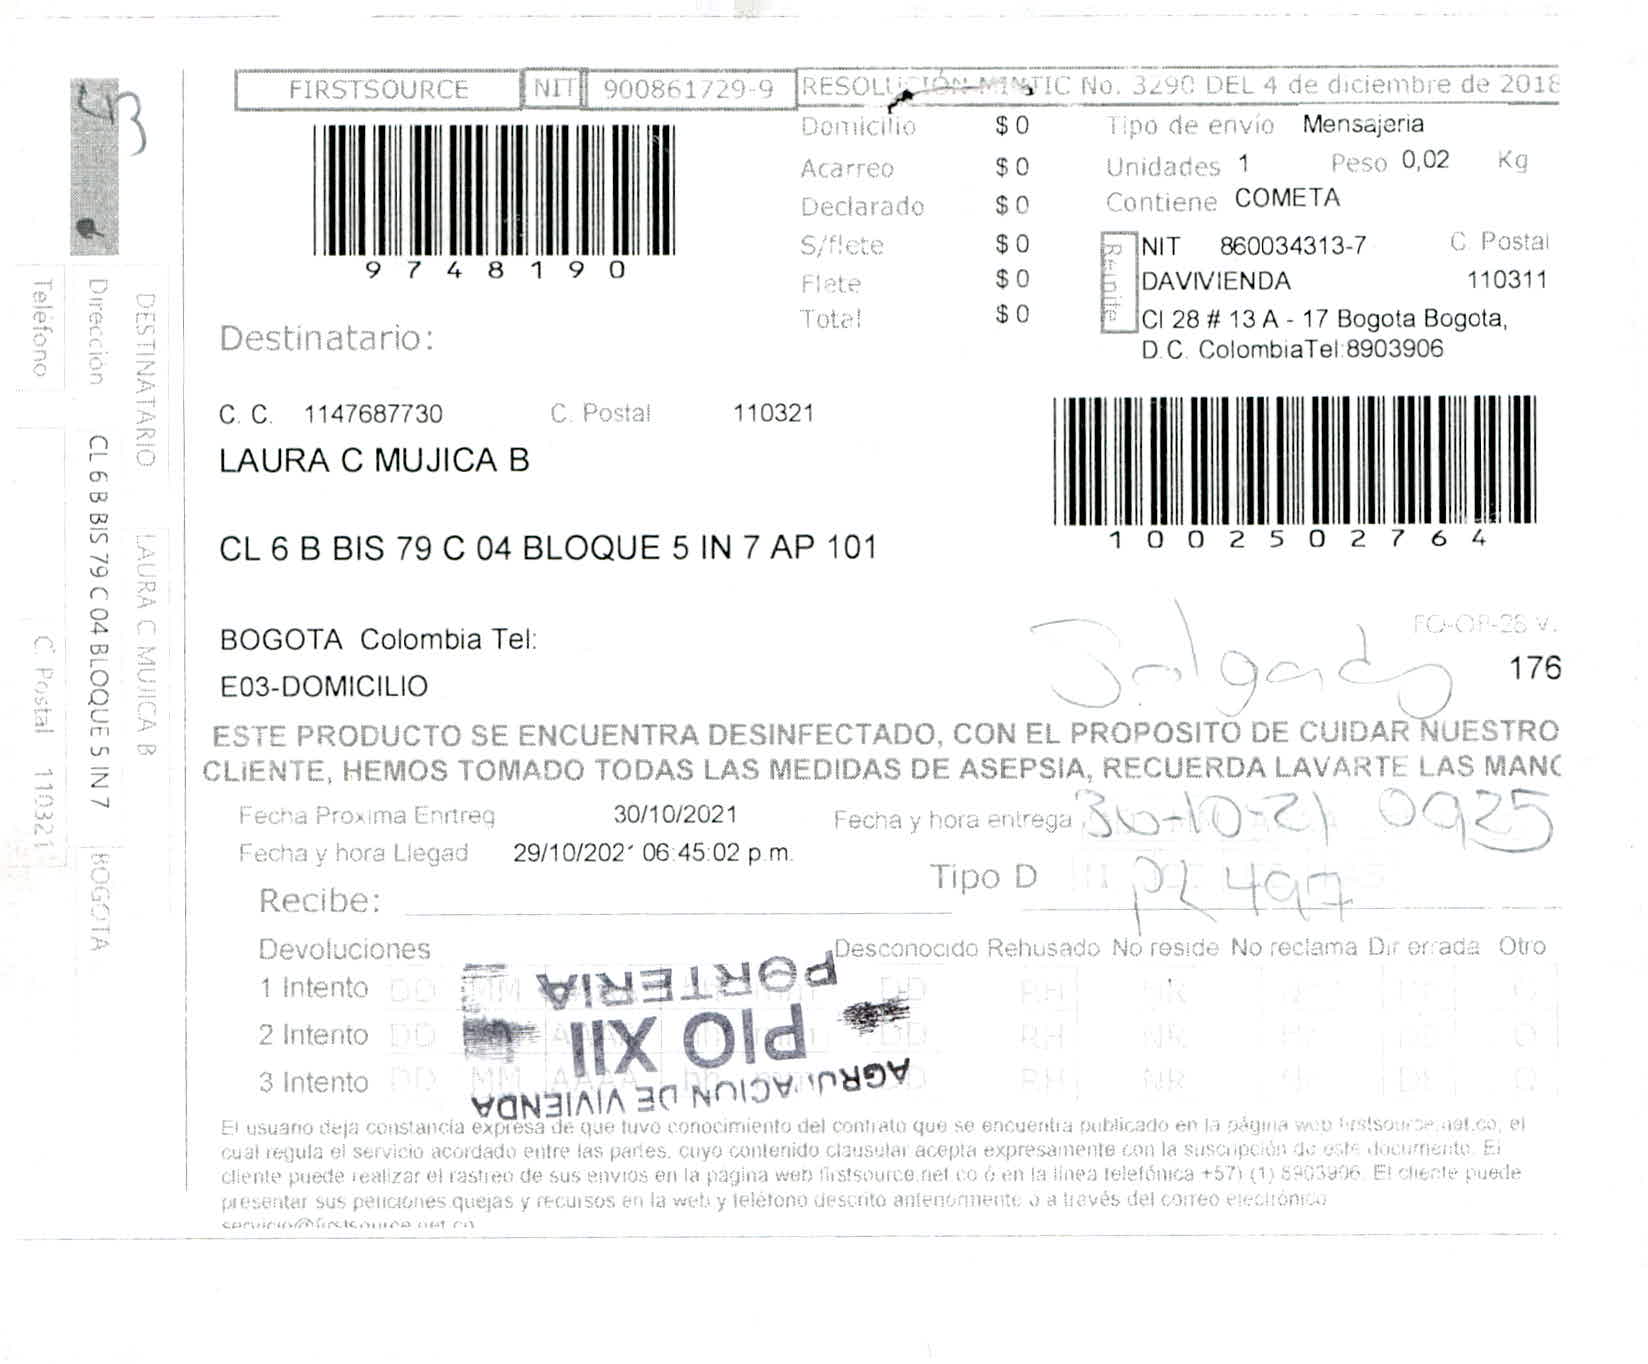 FIRSTSOURCE NIT 900861729-9 RESOLUCIÓN MINTIC No. 3290 DEL 4 de diciembre de 2018
9748190
Domicilio $ 0
Acarreo $ 0
Declarado $ 0
S/flete $ 0
Flete $ 0
Total $ 0
Tipo de envío Mensajeria
Unidades 1 Peso 0,02 Kg
Contiene COMETA
Remite
NIT 860034313-7 C. Postal
DAVIVIENDA 110311
Cl 28 # 13 A - 17 Bogota Bogota,
D.C. ColombiaTel:8903906
Destinatario:
C. C. 1147687730 C. Postal 110321
LAURA C MUJICA B
1002502764
CL 6 B BIS 79 C 04 BLOQUE 5 IN 7 AP 101
BOGOTA Colombia Tel:
E03-DOMICILIO
Salgado
FO-OP-28 V.
176
ESTE PRODUCTO SE ENCUENTRA DESINFECTADO, CON EL PROPOSITO DE CUIDAR NUESTRO
CLIENTE, HEMOS TOMADO TODAS LAS MEDIDAS DE ASEPSIA, RECUERDA LAVARTE LAS MANO
Fecha Proxima Enrtreg 30/10/2021 Fecha y hora entrega 30-10-21 0925
Fecha y hora Llegad 29/10/2021 06:45:02 p.m. Tipo D PL 497
Recibe:
Devoluciones Desconocido Rehusado No reside No reclama Dir errada Otro
1 Intento DD MM DD RH NR
2 Intento DD DD RH NR
3 Intento DD MM AAAA RH NR
AGRUPACION DE VIVIENDA
PIO XII
PORTERIA
El usuario deja constancia expresa de que tuvo conocimiento del contrato que se encuentra publicado en la página web firstsource.net.co, el
cual regula el servicio acordado entre las partes, cuyo contenido clausular acepta expresamente con la suscripción de este documento. El
cliente puede realizar el rastreo de sus envios en la pagina web firstsource.net.co ó en la línea telefónica +57) (1) 8903906. El cliente puede
presentar sus peticiones quejas y recursos en la web y teléfono descrito anteriormente o a través del correo electrónico
servicio@firstsource.net.co
DESTINATARIO LAURA C MUJICA B
Dirección CL 6 B BIS 79 C 04 BLOQUE 5 IN 7 BOGOTA
Teléfono C. Postal 110321